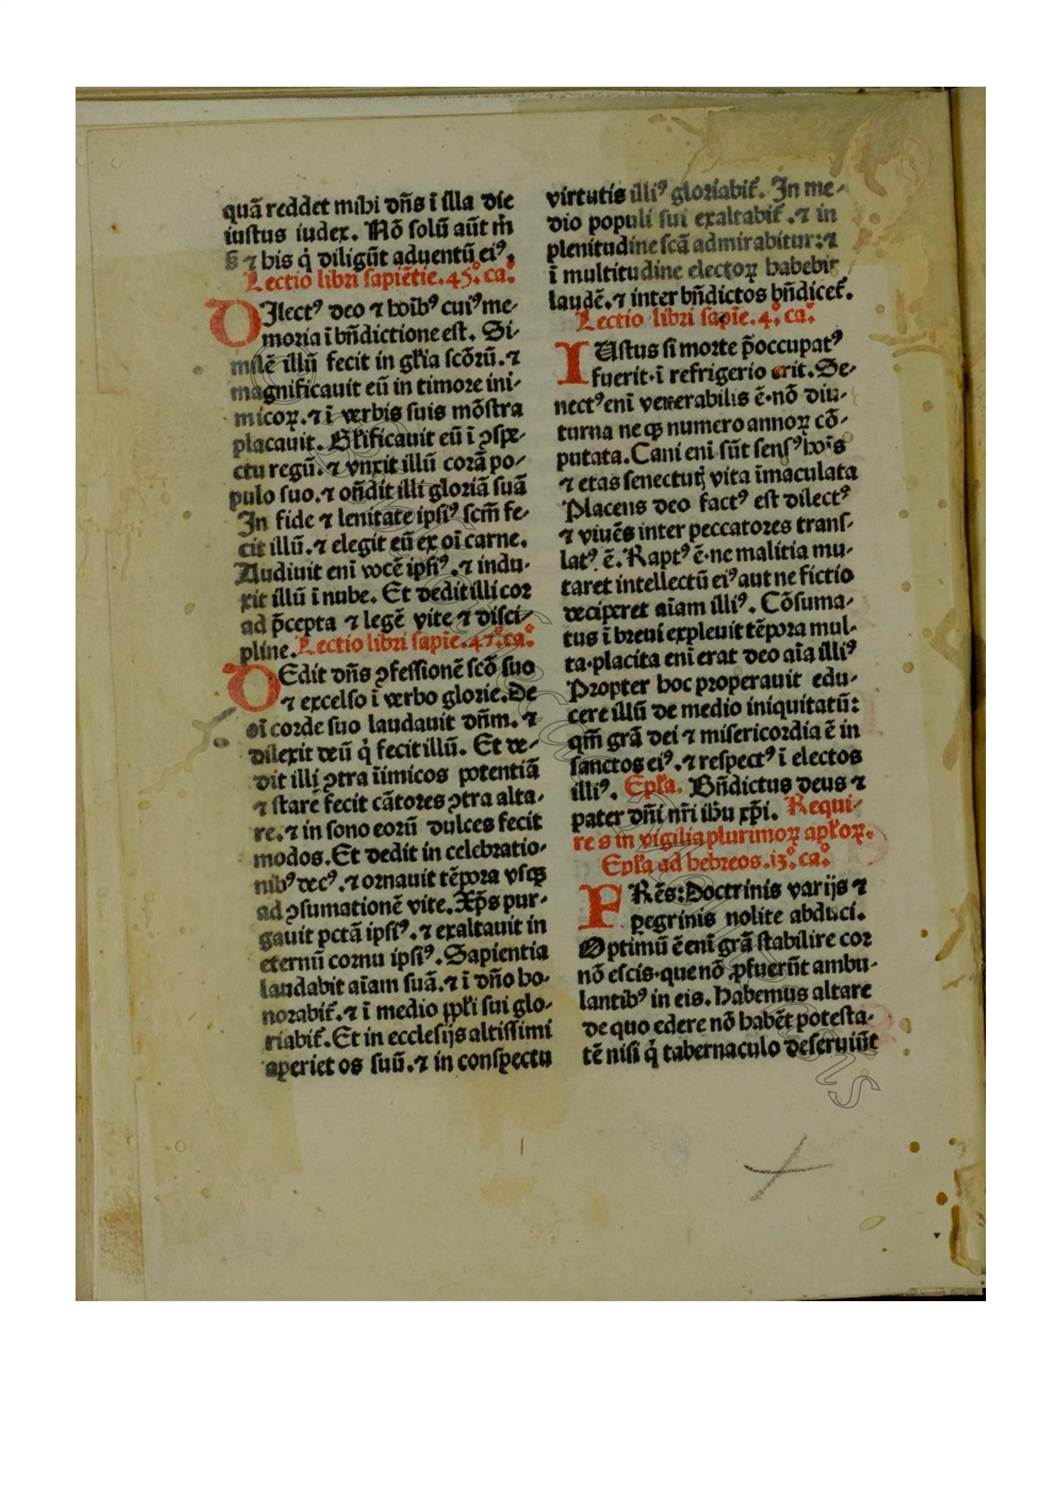 quā reddet mihi dn̄s ī illa die
iustus iudex. Nō solū aūt m̄
s̄ ⁊ his q̇ diligūt aduentū ei⁹.
Lectio libri sapiētie. 45.° ca.°
DIlect⁹ deo ⁊ hoīb⁹ cui⁹ me-
moria ī bn̄dictione est. Si-
milē illū fecit in gl̄ia scōrū. ⁊
magnificauit eū in timore ini-
micoꝝ. ⁊ ī verbis suis mōstra
placauit. Gl̄ificauit eū ī ꝯspe-
ctu regū. ⁊ vnxit illū corā po-
pulo suo. ⁊ on̄dit illi gloriā suā
In fide ⁊ lenitate ipsi⁹ scm̄ fe-
cit illū. ⁊ elegit eū ex oī carne.
Audiuit enī vocē ipsi⁹. ⁊ indu-
xit illū ī nube. Et dedit illi cor
ad p̄cepta ⁊ legē vite ⁊ disci-
pline. Lectio libri sapīe. 47.° ca.°
DEdit dn̄s ꝯfessionē scō suo
⁊ excelso ī verbo glorie. De
oī corde suo laudauit dn̄m. ⁊
dilexit deū q̇ fecit illū. Et de-
dit illi ꝯtra īimicos potentiā
⁊ stare fecit cātores ꝯtra alta-
re. ⁊ in sono eorū dulces fecit
modos. Et dedit in celebratio-
nib⁹ dec⁹. ⁊ ornauit tēpora vsqꝫ
ad ꝯsumationē vite. Xp̄s pur-
gauit pctā ipsi⁹. ⁊ exaltauit in
eternū cornu ipsi⁹. Sapientia
laudabit aīam suā. ⁊ ī dn̄o ho-
norabit̄. ⁊ ī medio ppl̄i sui glo-
riabit̄. Et in ecclesijs altissimi
aperiet os suū. ⁊ in conspectu
virtutis illi⁹ gloriabit̄. In me-
dio populi sui exaltabit̄. ⁊ in
plenitudine scā admirabitur: ⁊
ī multitudine electoꝝ habebit
laudē. ⁊ inter bn̄dictos bn̄dicet̄.
Lectio libri sapīe. 4.° ca.°
IUstus si morte p̄occupat⁹
fuerit· ī refrigerio erit. Se-
nect⁹ enī venerabilis ē· nō diu-
turna neqꝫ numero annoꝝ cō-
putata. Cani enī sūt sens⁹ hoīs
⁊ etas senectutꝭ vita īmaculata
Placens deo fact⁹ est dilect⁹
⁊ viuēs inter peccatores trans-
lat⁹ ē. Rapt⁹ ē· ne malitia mu-
taret intellectū ei⁹ aut ne fictio
deciperet aīam illi⁹. Cōsuma-
tus ī breui expleuit tēpora mul-
ta· placita enī erat deo aīa illi⁹
Propter hoc properauit edu-
cere illū de medio iniquitatū:
qm̄ grā dei ⁊ misericordia ē in
sanctos ei⁹. ⁊ respect⁹ ī electos
illi⁹. Epl̄a. Bn̄dictus deus ⁊
pater dn̄i nr̄i ihū xp̄i. Requi-
re s in vigilia plurimoꝝ apl̄oꝝ.
Epl̄a ad hebreos. 13.° ca.°
FRēs: Doctrinis varijs ⁊
ꝑegrinis nolite abduci.
Optimū ē enī grā stabilire cor
nō escis· que nō ꝓfuerūt ambu-
lantib⁹ in eis. Habemus altare
de quo edere nō habēt potesta-
tē nisi q̇ tabernaculo deseruiūt